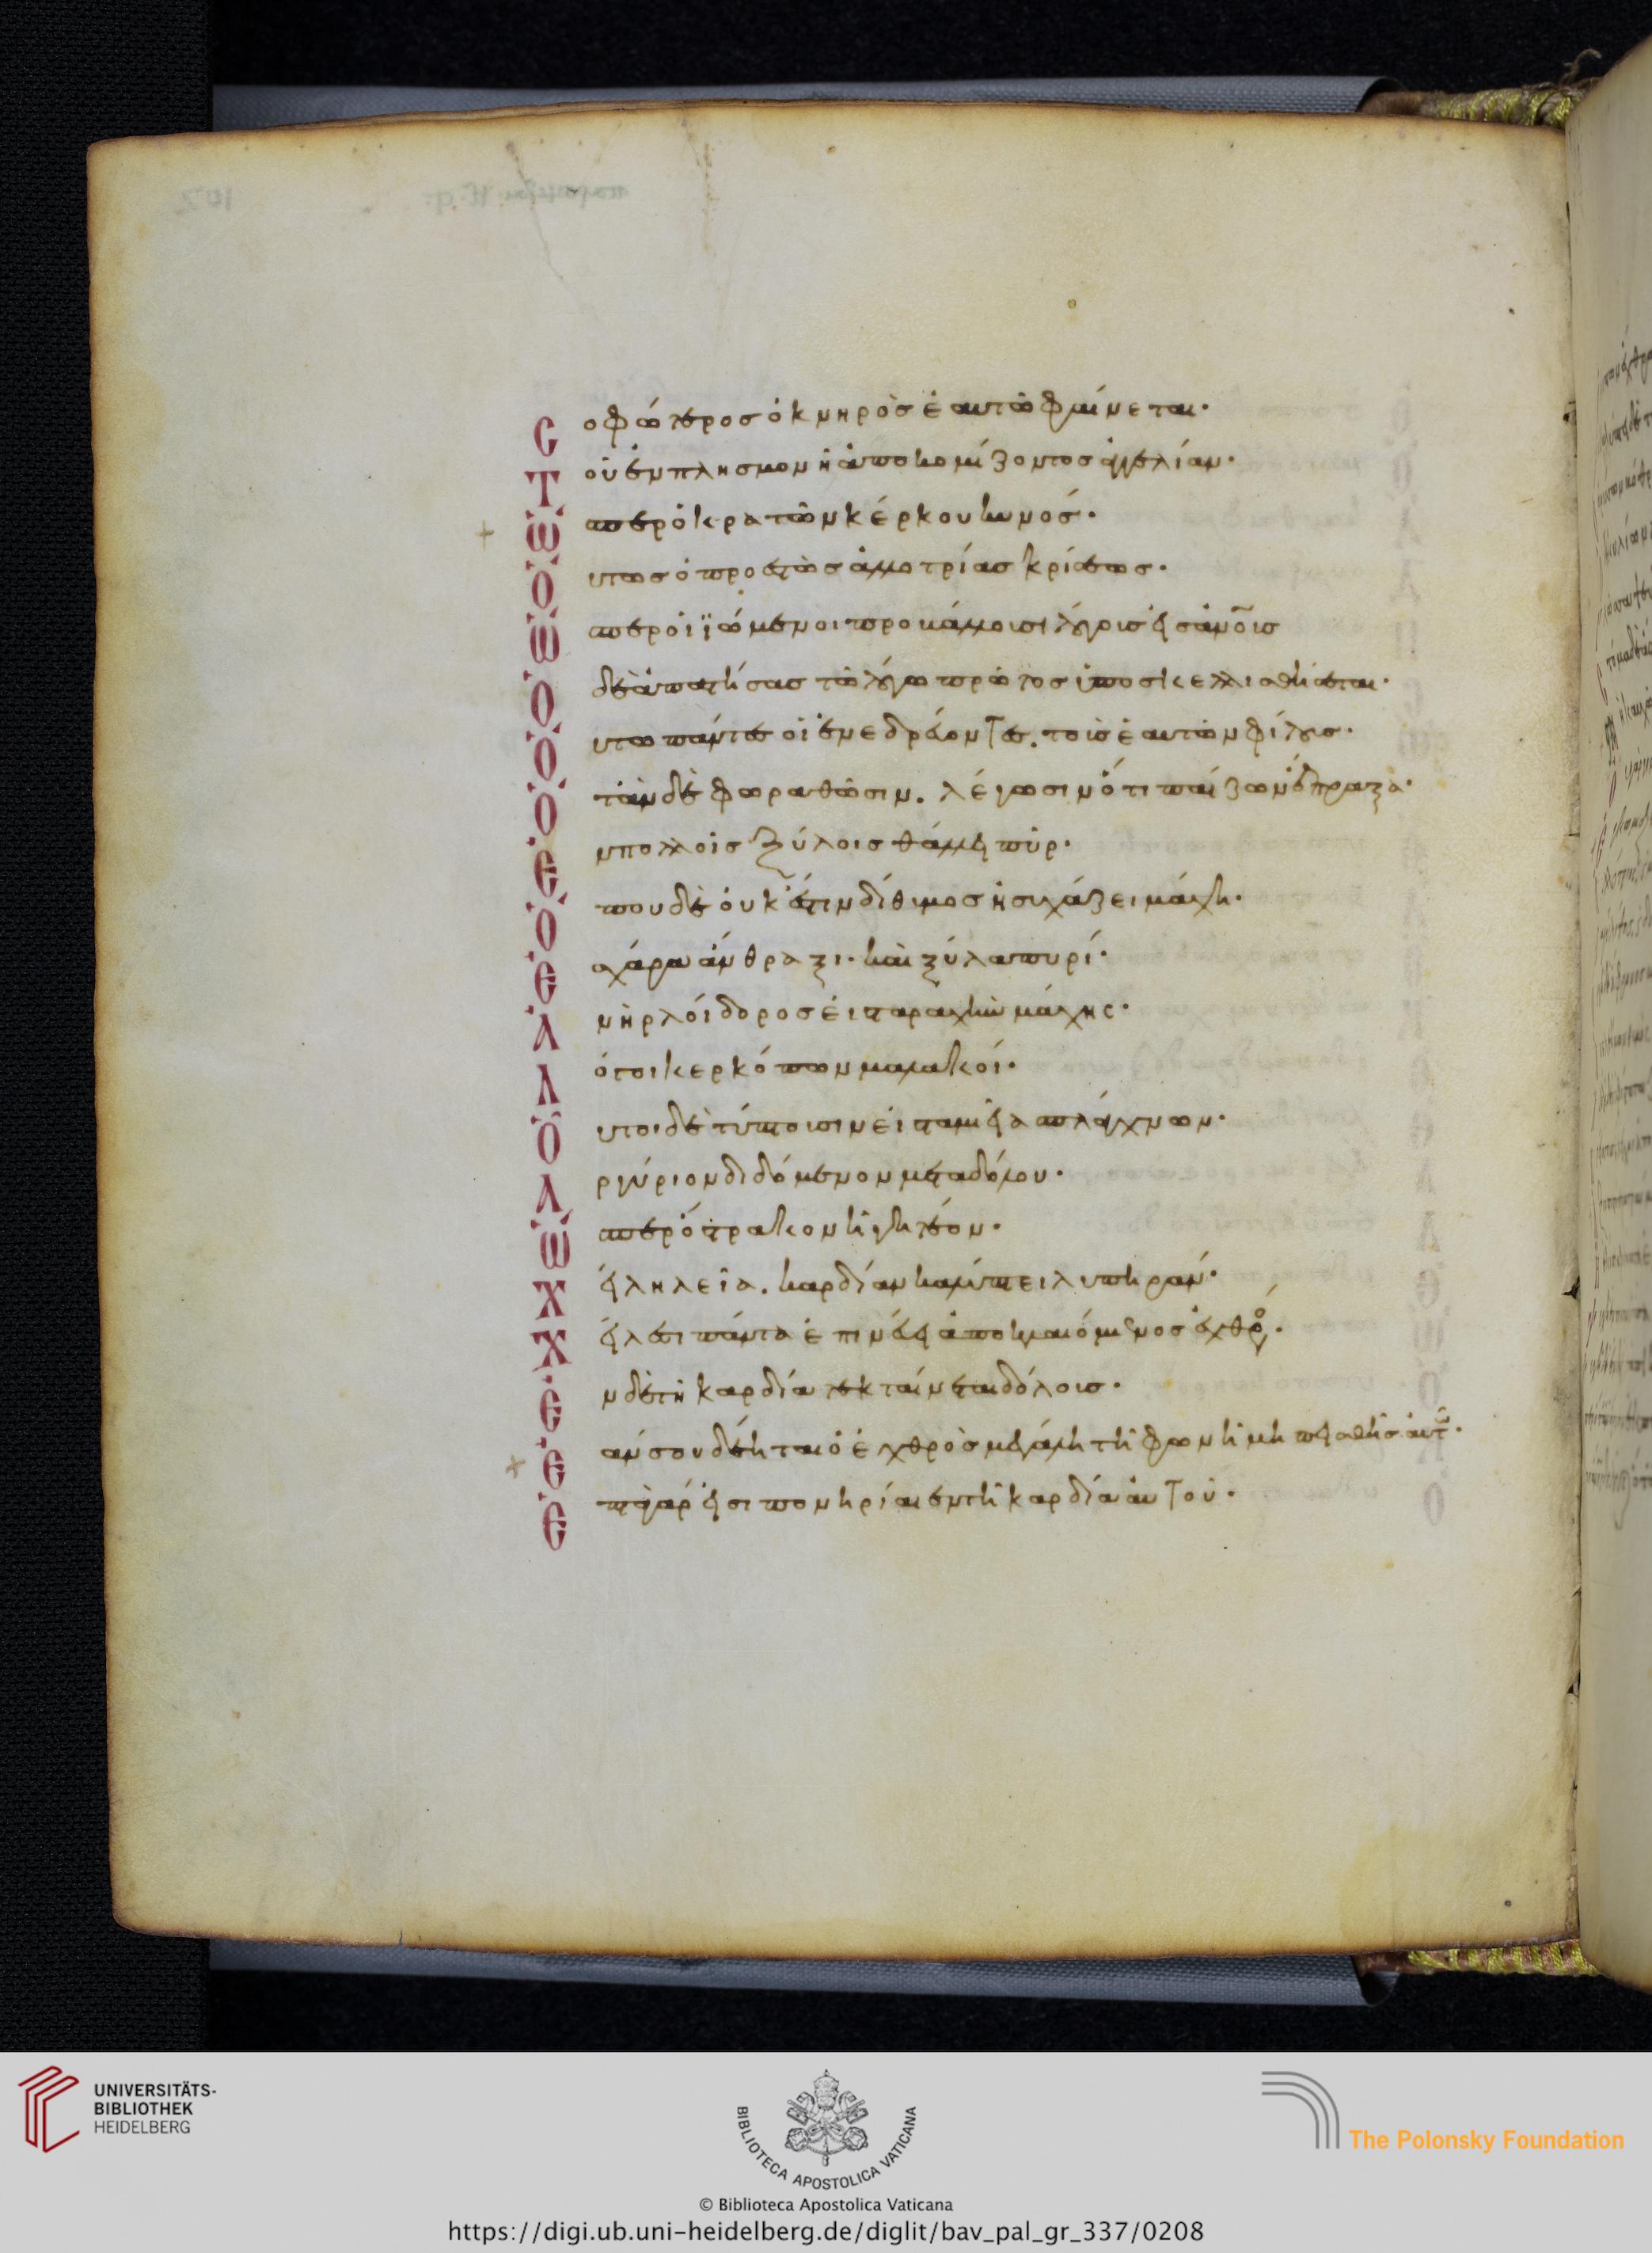 Σοφώτερος ὀκνηρὸς ἑαυτῶ φαίνεται·
Τοῦ ἐν πλησμονῆ ἀποκομίζοντος ἀγγελίαν·
Ὥσπερ ὁ κρατῶν κέρκου κυνός·
Οὕτως ὁ προεστὼς ἀλλοτρίας κρίσεως·
Ὥσπερ οἱ ϊώμενοι προβάλλουσι λόγους εἰς ἀνους
Ὁ δὲ ἀπαντήσας τῶ λόγω πρῶτος ὑποσκελλισθήσεται·
Οὕτω πάντες οἱ ἐνεδρεύοντες. τοὺς ἑαυτῶν φίλους·
Ὅταν δὲ φωραθῶσιν. λέγωσιν ὅτι παίζων ἔπραξα·
Ἐν πολλοῖς ξύλοις θάλλει πῦρ·
Ὅπου δὲ οὐκ ἔστιν δίθυμος ἡσυχάζει μάχη·
Ἐσχάρα ἄνθραξι· καὶ ξύλα πυρί·
Ἀνὴρ λοίδορος εἰς ταραχὴν μάχης·
Λόγοι κερκόπων μαλακοί·
Οὗτοι δὲ τύπτουσιν εἰς ταμεῖα σπλάγχνων·
Ἀργύριον διδόμενον μετὰ δόλου·
Ὥσπερ ὄστρακον ἡγητέον·
Χείλη λεῖα. καρδίαν καλύπτει λυπηράν·
Χείλεσι πάντα ἐπινεύει ἀποκλαιόμενος ἐχθρός·
Ἐν δὲ τῆ καρδία τεκταίνεται δόλους·
Ἐάν σου δέηται ὁ ἐχθρὸς μεγάλη τῆ φωνῆ μὴ πεισθῆς αὐτῶ·
Ἑπτὰ γάρ εἰσι πονηρίαι ἐν τῆ καρδία αὐτοῦ·
UNIVERSITÄTS-
BIBLIOTHEK
HEIDELBERG
BIBLIOTECA APOSTOLICA VATICANA
The Polonsky Foundation
© Biblioteca Apostolica Vaticana
https://digi.ub.uni-heidelberg.de/diglit/bav_pal_gr_337/0208